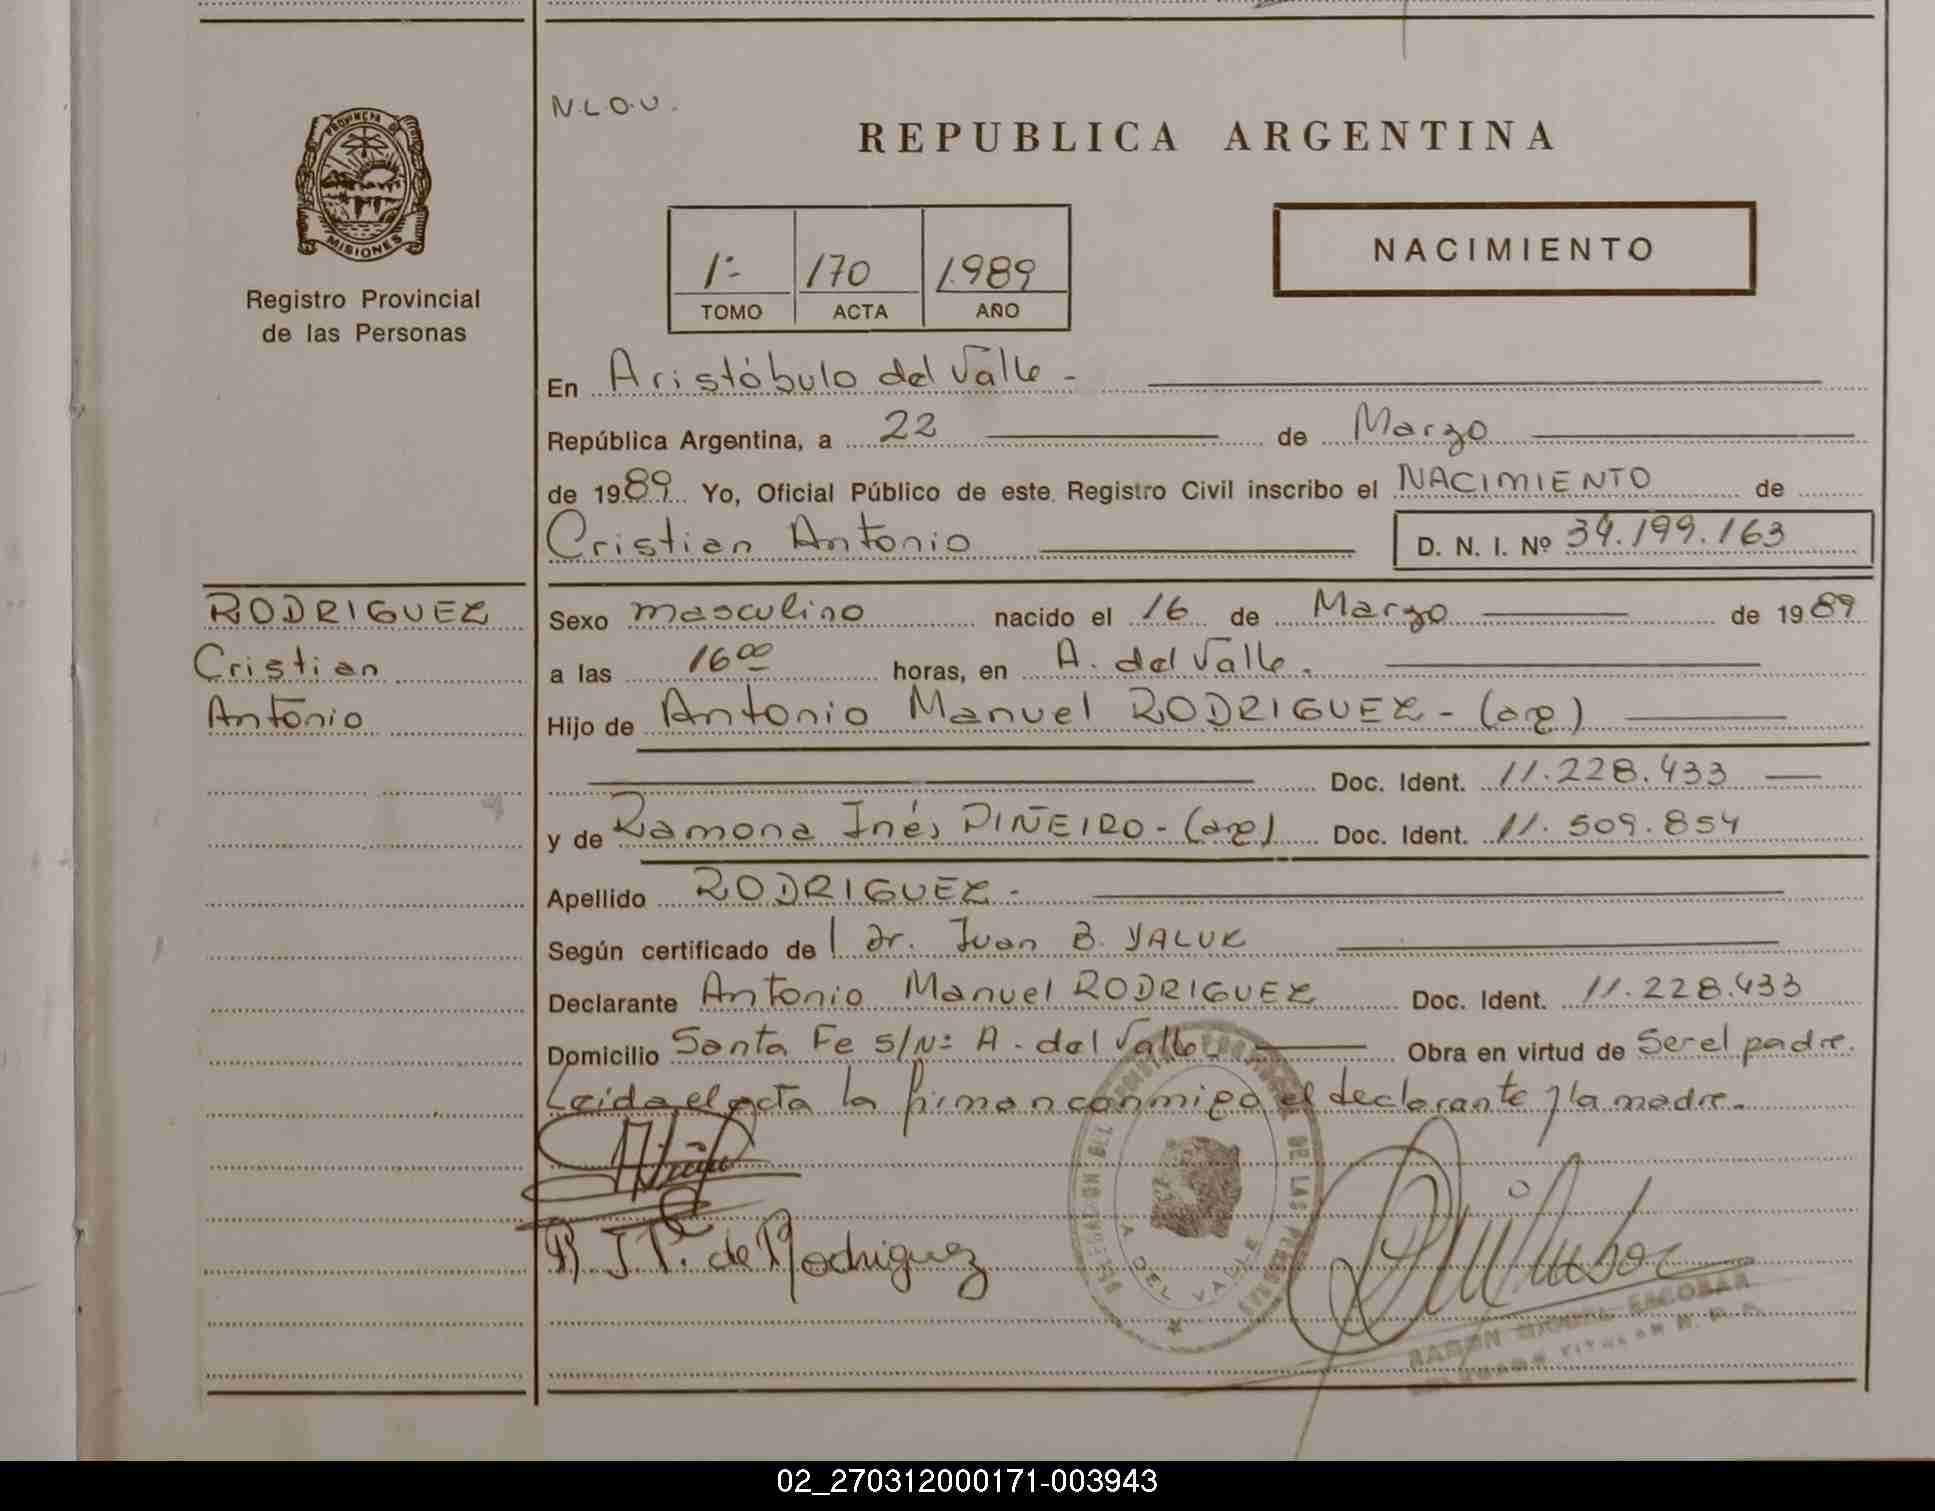 N.L.O.U.
REPUBLICA ARGENTINA
PROVINCIA DE
MISIONES
Registro Provincial
de las Personas
1º 170 1.989
TOMO ACTA AÑO
NACIMIENTO
En Aristóbulo del Valle -
República Argentina, a 22 de Marzo
de 1989 Yo, Oficial Público de este Registro Civil inscribo el NACIMIENTO de
Cristian Antonio D. N. I. Nº 34.199.163
RODRIGUEZ
Cristian
Antonio
Sexo masculino nacido el 16 de Marzo de 1989
a las 16ºº horas, en A. del Valle.
Hijo de Antonio Manuel RODRIGUEZ - (arg)
Doc. Ident. 11.228.433
y de Ramona Inés PIÑEIRO - (arg) Doc. Ident. 11.509.854
Apellido RODRIGUEZ -
Según certificado de l Dr. Juan B. YALUK
Declarante Antonio Manuel RODRIGUEZ Doc. Ident. 11.228.433
Domicilio Santa Fe s/Nº A. del Valle. Obra en virtud de Ser el padre.
Leida el acta la firman conmigo el declarante y la madre.
R. I. P. de Rodriguez
DE LAS
A DEL VALLE
RAMON MIGUEL ESCOBAR
02_270312000171-003943